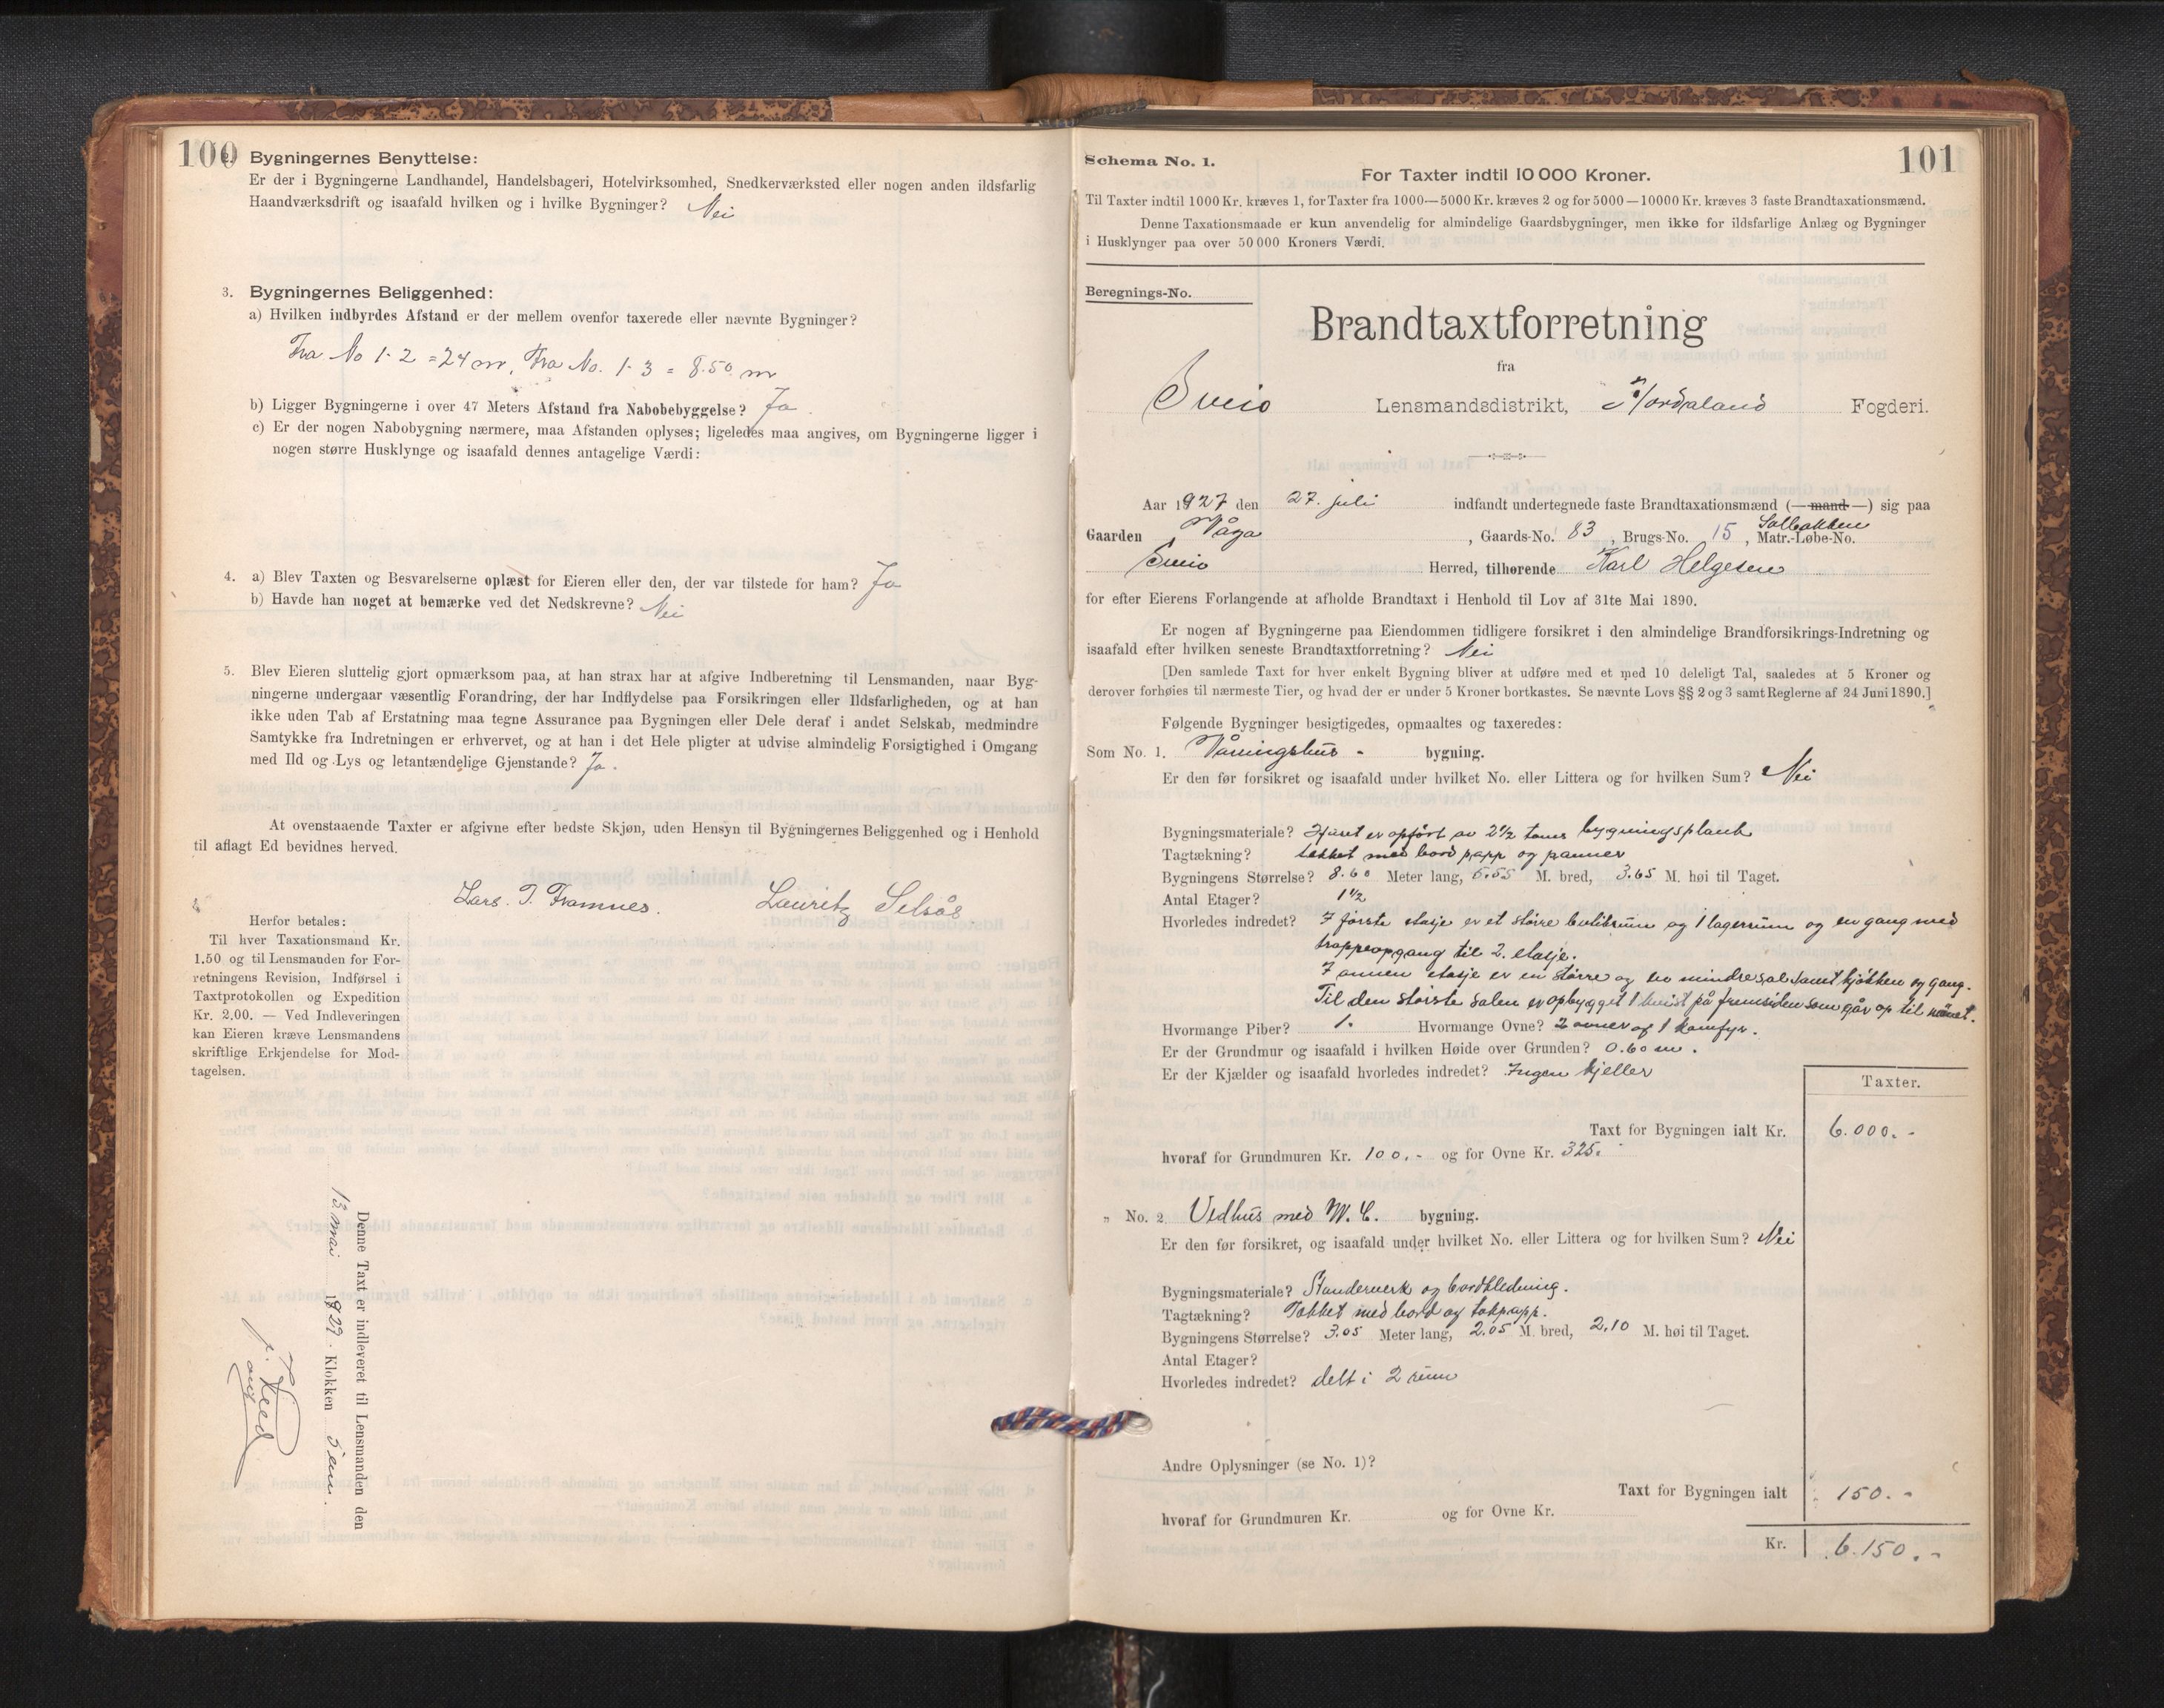 100
2. Bygningernes Benyttelse:
Er der i Bygningerne Landhandel, Handelsbageri, Hotelvirksomhed, Snedkerværksted eller nogen anden ildsfarlig
Haandværksdrift og isaafald hvilken og i hvilke Bygninger? Nei
3. Bygningernes Beliggenhed:
a) Hvilken indbyrdes Afstand er der mellem ovenfor taxerede eller nævnte Bygninger?
Fra No 1-2 = 24 m, Fra No. 1-3 = 8.50 m
b) Ligger Bygningerne i over 47 Meters Afstand fra Nabobebyggelse? Ja.
c) Er der nogen Nabobygning nærmere, maa Afstanden oplyses; ligeledes maa angives, om Bygningerne ligger i
nogen større Husklynge og isaafald dennes antagelige Værdi:
4. a) Blev Taxten og Besvarelserne oplæst for Eieren eller den, der var tilstede for ham? Ja
b) Havde han noget at bemærke ved det Nedskrevne? Nei
5. Blev Eieren sluttelig gjort opmærksom paa, at han strax har at afgive Indberetning til Lensmanden, naar Byg-
ningerne undergaar væsentlig Forandring, der har Indflydelse paa Forsikringen eller Ildsfarligheden, og at han
ikke uden Tab af Erstatning maa tegne Assurance paa Bygningen eller Dele deraf i andet Selskab, medmindre
Samtykke fra Indretningen er erhvervet, og at han i det Hele pligter at udvise almindelig Forsigtighed i Omgang
med Ild og Lys og letantændelige Gjenstande? Ja.
At ovenstaaende Taxter er afgivne efter bedste Skjøn, uden Hensyn til Bygningernes Beliggenhed og i Henhold
til aflagt Ed bevidnes herved.
Lars. T. Framnes. Lauritz Selsås
Herfor betales:
Til hver Taxationsmand Kr.
1.50 og til Lensmanden for For-
retningens Revision, Indførsel i
Taxtprotokollen og Expedition
Kr. 2.00. — Ved Indleveringen
kan Eieren kræve Lensmandens
skriftlige Erkjendelse for Mod-
tagelsen.
Denne Taxt er indleveret til Lensmanden den
13 mai 1927. Klokken 5 em.
101
Schema No. 1.
For Taxter indtil 10 000 Kroner.
Til Taxter indtil 1000 Kr. kræves 1, for Taxter fra 1000—5000 Kr. kræves 2 og for 5000—10000 Kr. kræves 3 faste Brandtaxationsmænd.
Denne Taxationsmaade er kun anvendelig for almindelige Gaardsbygninger, men ikke for ildsfarlige Anlæg og Bygninger
i Husklynger paa over 50 000 Kroners Værdi.
Beregnings-No.
Brandtaxtforretning
fra
Sveio Lensmandsdistrikt, Fogderi.
Aar 1927 den 27. juli indfandt undertegnede faste Brandtaxationsmænd (—mand—) sig paa
Gaarden Våga, Gaards-No. 83, Brugs-No. 15, Matr.-Løbe-No. Solbakken
Sveio Herred, tilhørende Karl Helgesen
for efter Eierens Forlangende at afholde Brandtaxt i Henhold til Lov af 31te Mai 1890.
Er nogen af Bygningerne paa Eiendommen tidligere forsikret i den almindelige Brandforsikrings-Indretning og
isaafald efter hvilken seneste Brandtaxtforretning? Nei
[Den samlede Taxt for hver enkelt Bygning bliver at udføre med et med 10 deleligt Tal, saaledes at 5 Kroner og
derover forhøies til nærmeste Tier, og hvad der er under 5 Kroner bortkastes. Se nævnte Lovs §§ 2 og 3 samt Reglerne af 24 Juni 1890.]
Følgende Bygninger besigtigedes, opmaaltes og taxeredes:
Som No. 1. Våningshus - bygning.
Er den før forsikret og isaafald under hvilket No. eller Littera og for hvilken Sum? Nei
Bygningsmateriale? Huset er opført av 2½ toms bygningsplank
Tagtækning? tækket med bord papp og panner
Bygningens Størrelse? 8.60 Meter lang, 6.55 M. bred, 3.65 M. høi til Taget.
Antal Etager? 1½
Hvorledes indredet? I første etasje er et større butikrum og 1 lagerrum og en gang med
trappeopgang til 2. etasje.
I annen etasje er en større og en mindre sal samt kjøkken og gang.
Til den største salen er opbygget 1 kvist på fremsiden som går op til mønet.
Hvormange Piber? 1. Hvormange Ovne? 2 ovner og 1 komfyr.
Er der Grundmur og isaafald i hvilken Høide over Grunden? 0.60 m.
Er der Kjælder og isaafald hvorledes indredet? Ingen kjeller
Taxter.
Taxt for Bygningen ialt Kr. 6.000.-
hvoraf for Grundmuren Kr. 100.- og for Ovne Kr. 325.
" No. 2 Vedhus med W. C. bygning.
Er den før forsikret, og isaafald under hvilket No. eller Littera og for hvilken Sum? Nei
Bygningsmateriale? Standerverk og bordkledning.
Tagtækning? Tækket med bord og takpapp.
Bygningens Størrelse? 3.05 Meter lang, 2.05 M. bred, 2.10 M. høi til Taget.
Antal Etager?
Hvorledes indredet? delt i 2 rum
Andre Oplysninger (se No. 1)?
Taxt for Bygningen ialt 150.-
hvoraf for Grundmuren Kr. og for Ovne Kr.
Kr. 6.150.-